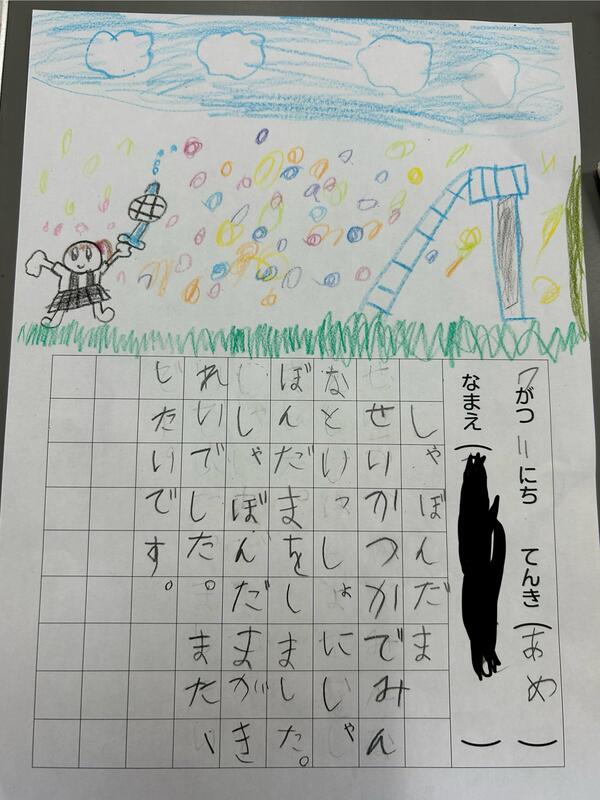 7がつ11にち てんき(あめ)
なまえ( )
しゃぼんだま
せいかつかでみん
なといっしょにしゃ
ぼんだまをしました。
しゃぼんだまがき
れいでした。また、
したいです。